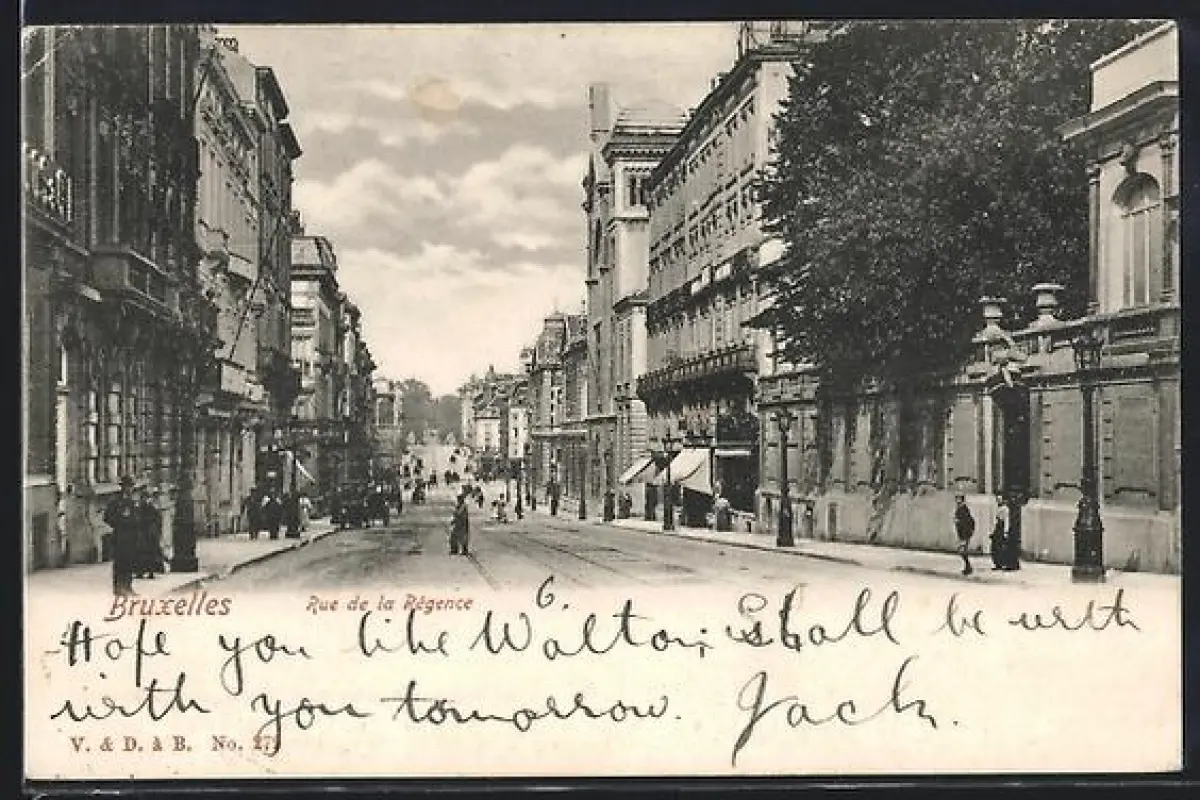 Bruxelles Rue de la Régence 6.
Hope you like Walton; Shall be with
with you tomorrow. Jack.
V. & D. à B. No.